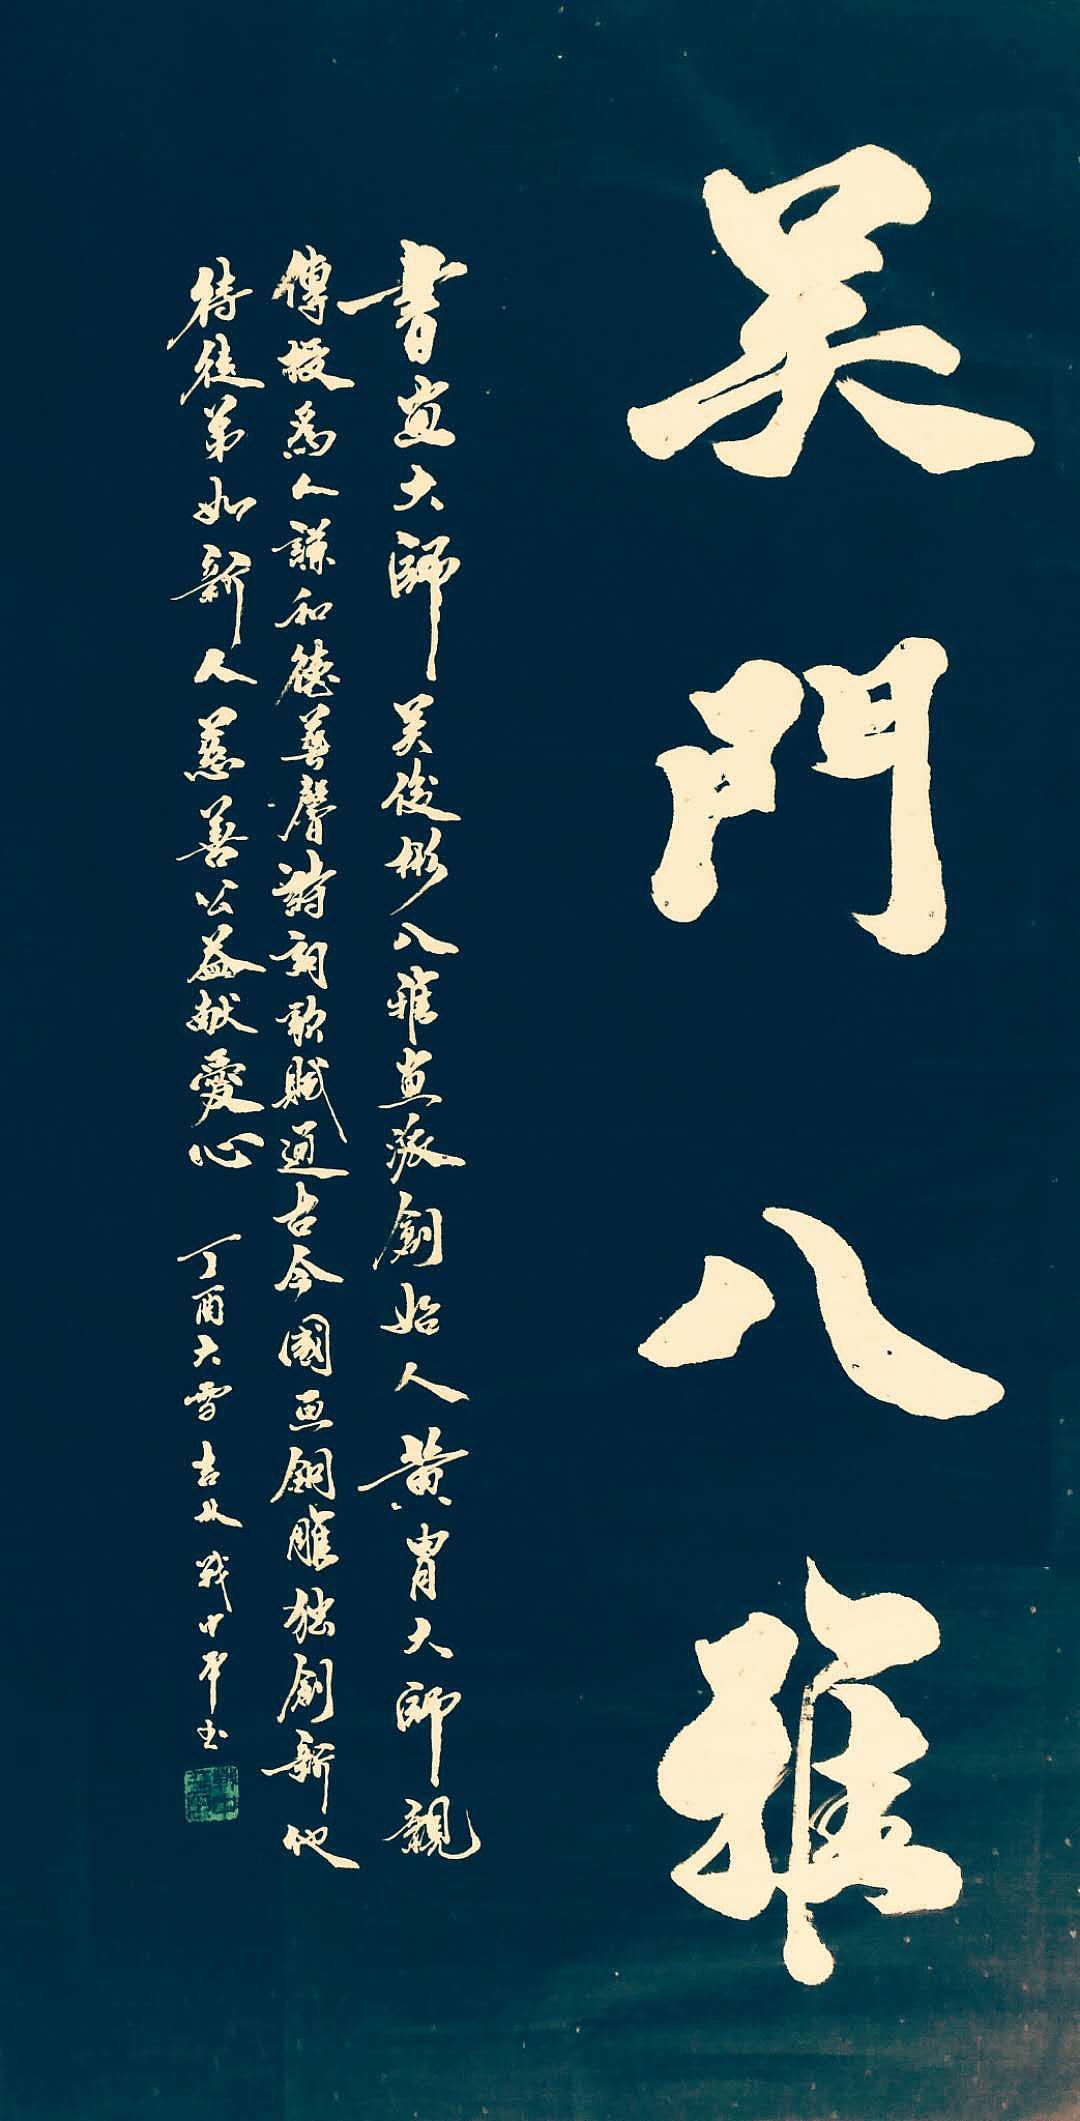 吴門八雅
書畫大師吴俊彬八雅畫派創始人黄胄大師親
傳授為人謙和德藝馨詩詞歌賦通古今國画銅雕独創新他
待徒弟如新人慈善公益献愛心
丁酉大雪吉林戰中军书